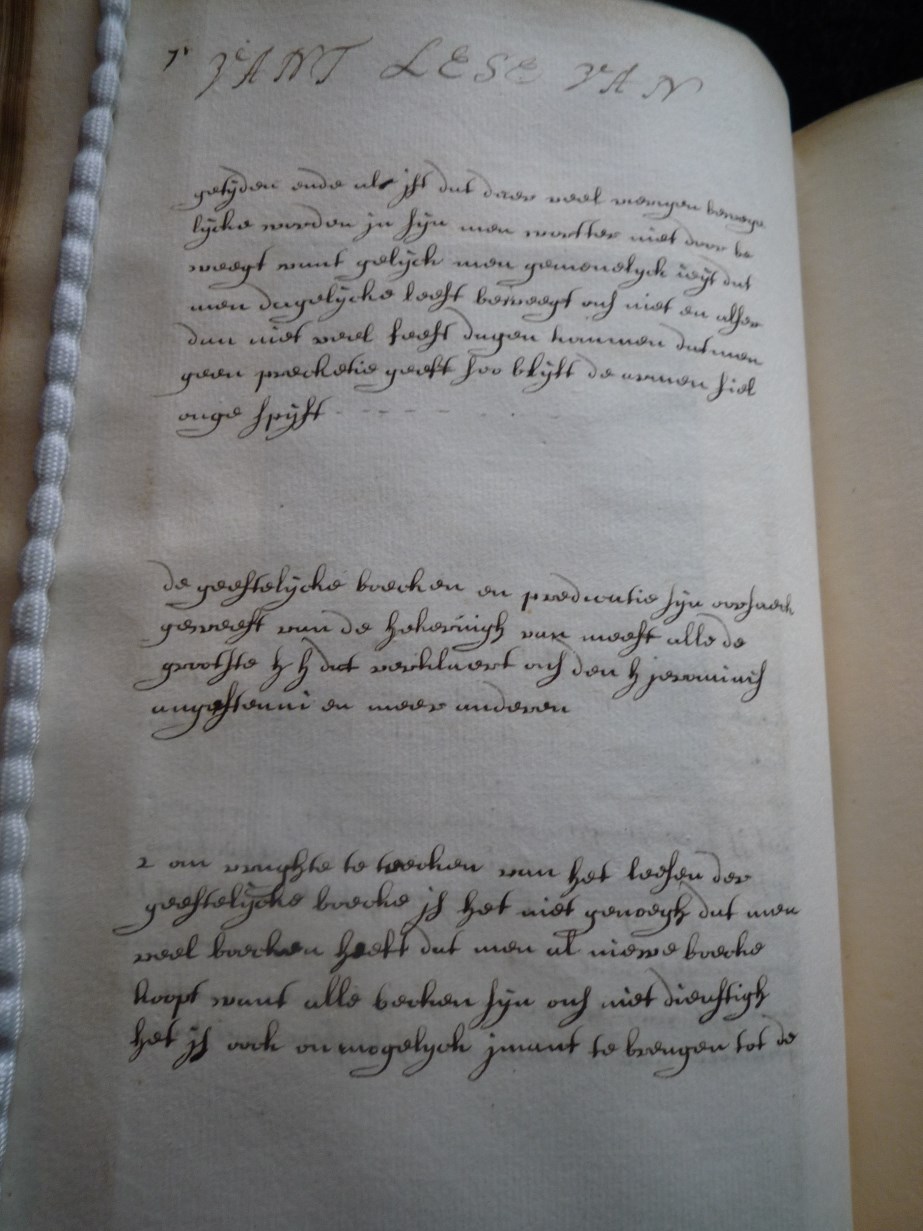 VANT LESE VAN
getyden ende als jst dat daer veel vierigen bewege
lycke worden jn syn men wortter niet door be
weegt want gelyck men gemenelyck seyt dat
men dagelycks leest beweegt ons niet en alser
dan niet veel feest dagen kommen datmen
geen precketie geeft soo blyft de armen siel
onge spyst
de geestelycke boecken en predicatie syn oorsaeck
geweest van de bekeringh van meest alle de
grootste h h dat verklaert ons den h jeronimis
augustenni en meer anderen
2 om vrughte te trecken van het leesen der
geestelycke boecke js het niet genoegh dat men
veel boecken heeft dat men al niewe boecke
koopt want alle boeken syn ons niet dienstigh
het js oock onmogelyck jmant te brengen tot de